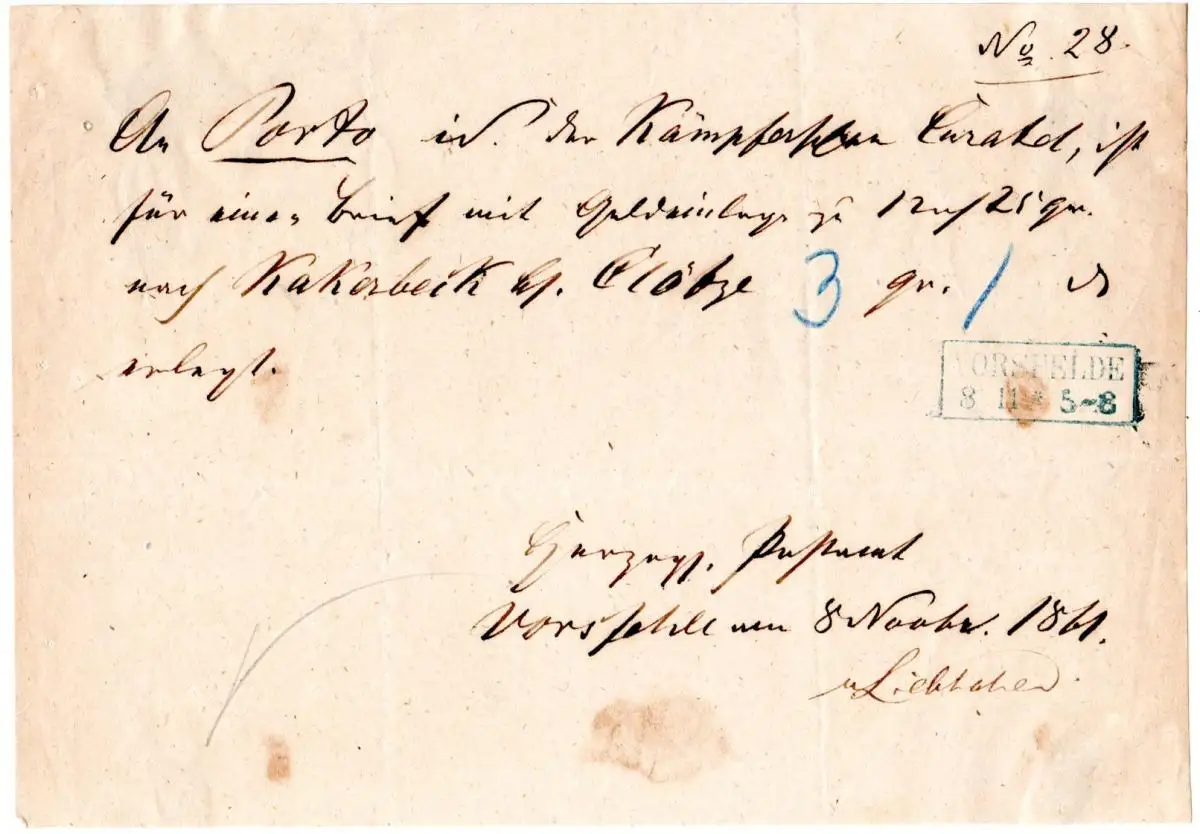 No. 28.
An Porto in der Kämpferschen Curatel, ist
für einen Brief mit Geldeinlage zu 25 gr.
nach Kakerbeck bei Clötze 3 gr. 1 d
erlegt.
VORSFELDE
8 11 * 5-8
Herzogl. Postamt
Vorsfelde am 8 Novbr. 1861.